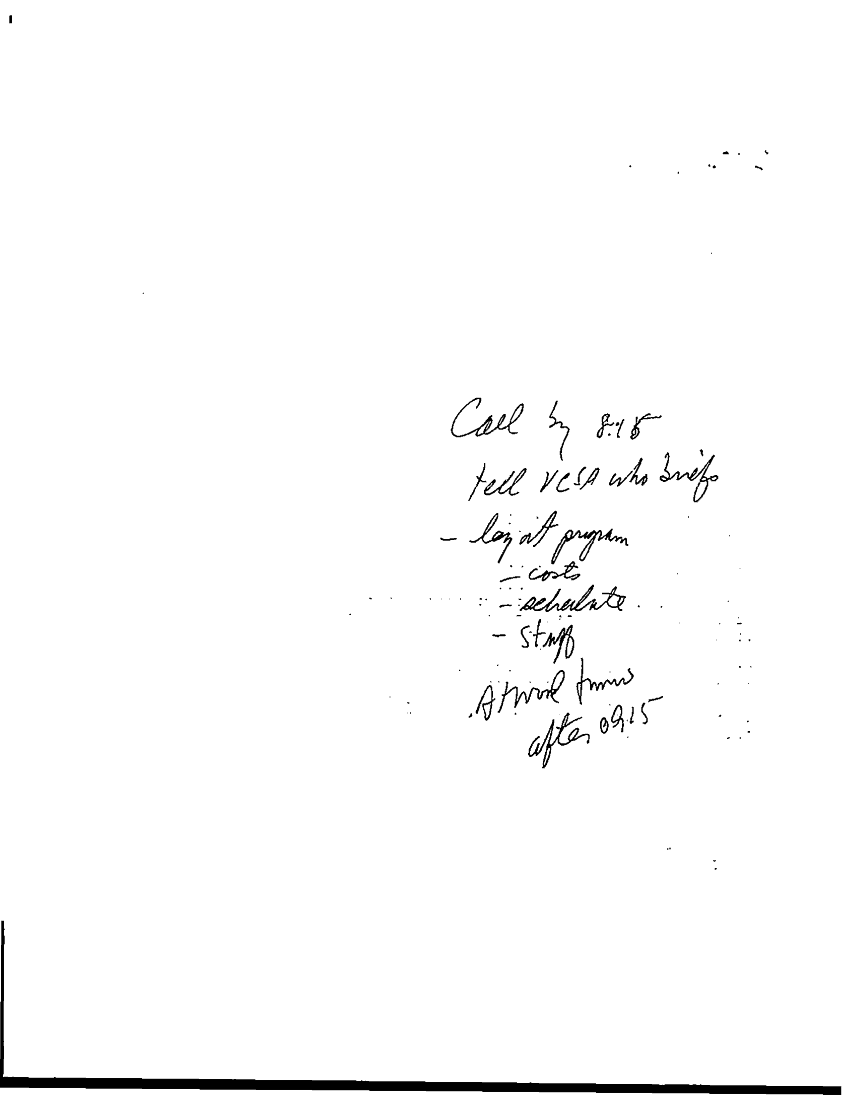 Call by 8:15
tell VCSA who briefs
- lay out program
- costs
- schedule
- Staff
Atwood
after 0915